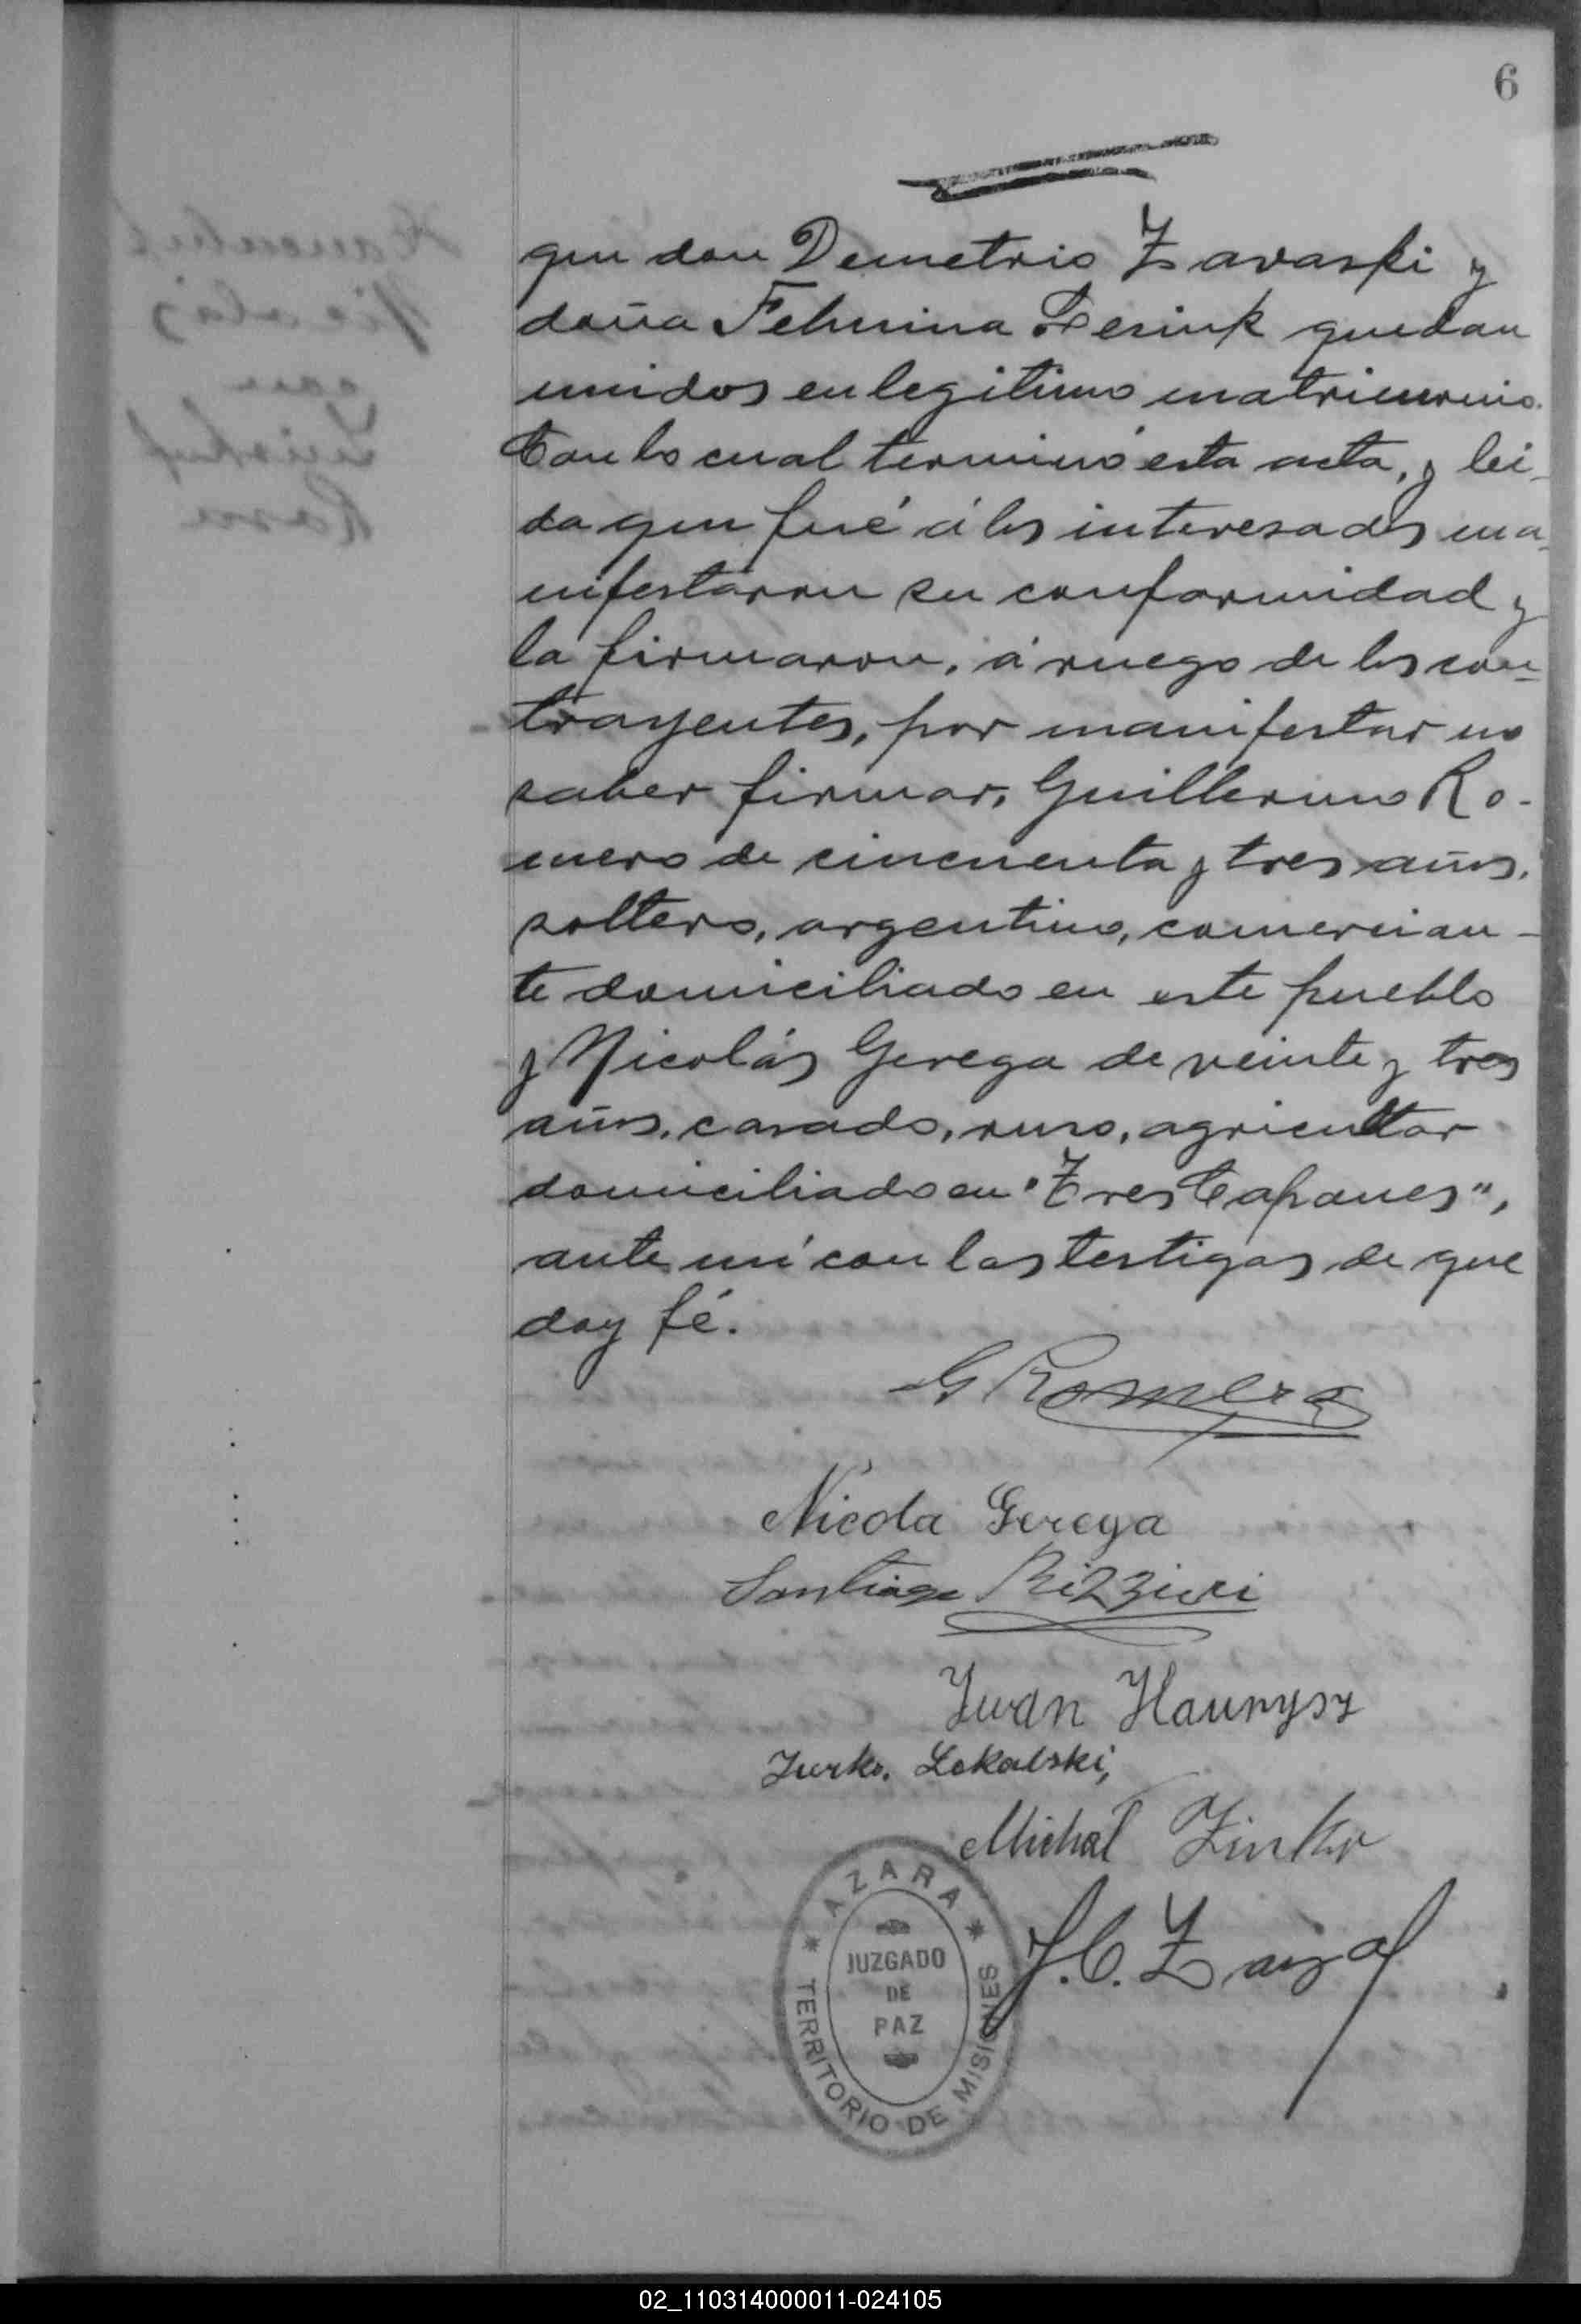 6
que don Demetrio Zavaski y
doña Felmina Lesiuk quedan
unidos en legitimo matrimonio.
Con lo cual terminó esta acta, y lei-
da que fué á los interesados ma-
nifestaron su conformidad y
la firmaron, á ruego de los con-
trayentes, por manifestar no
saber firmar, Guillermo Ro-
mero de cincuenta y tres años,
soltero, argentino, comercian-
te domiciliado en este pueblo
y Nicolás Gerega de veinte y tres
años, casado, ruso, agricultor
domiciliado en "Tres Capones",
ante mí con los testigos de que
doy fé.
G Romero
Nicola Gerega
Santiago
Iwan Hawrysz
Jurko. Lokalski,
Michal Zinko
J. C.
* AZARA *
JUZGADO
DE
PAZ
TERRITORIO DE MISIONES
02_110314000011-024105